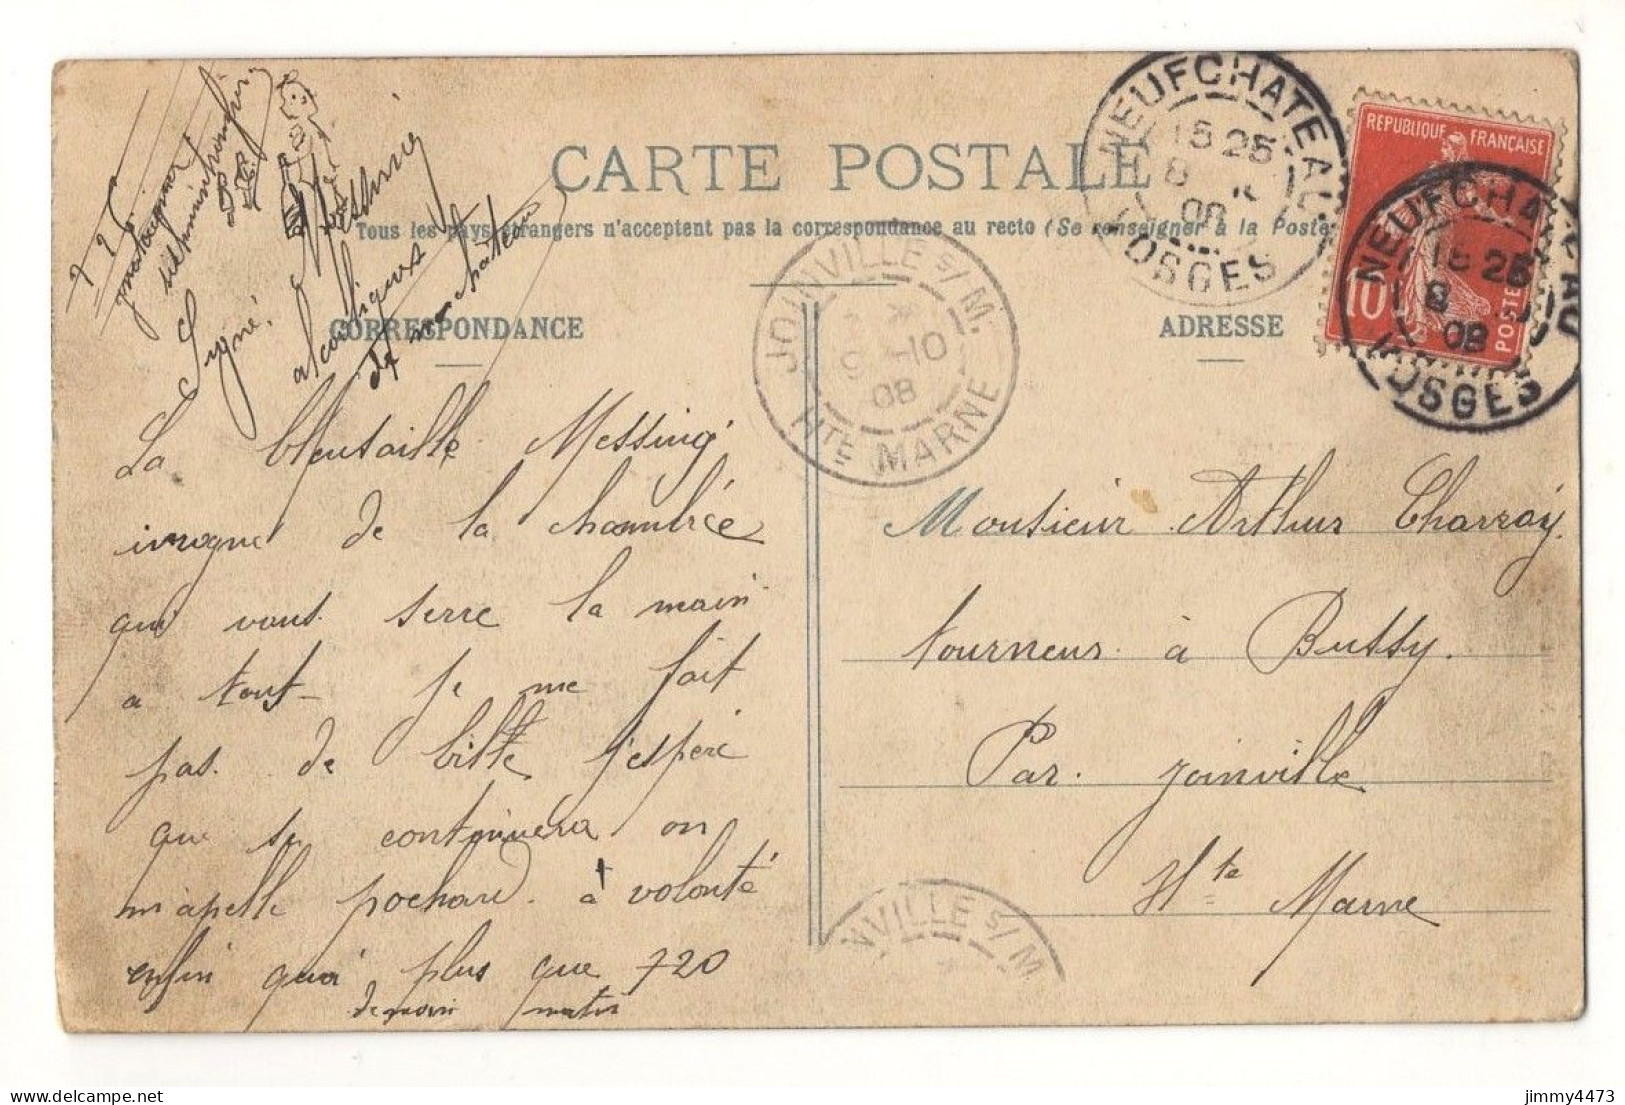 CARTE POSTALE
Tous les pays étrangers n'acceptent pas la correspondance au recto (Se renseigner à la Poste
CORRESPONDANCE
ADRESSE
NEUFCHATEAU
15 25
8
08
VOSGES
REPUBLIQUE FRANÇAISE
10
POSTES
NEUFCHATEAU
15 25
8
08
VOSGES
JOINVILLE S/M.
9 -10
08
HTE MARNE
Signé.
Messing
alcooliques
La bleusaille Messing
ivrogne de la chambrée
qui vous serre la main
a tous je me fait
pas de bille j'espère
que sa continuera on
m'apelle pochard à volonté
enfin quoi plus que 720
demain matin
Monsieur Arthur Charroy
tourneur à Bussy.
Par Joinville
Hte Marne
INVILLE S/M
jimmy4473 - delcampe.net